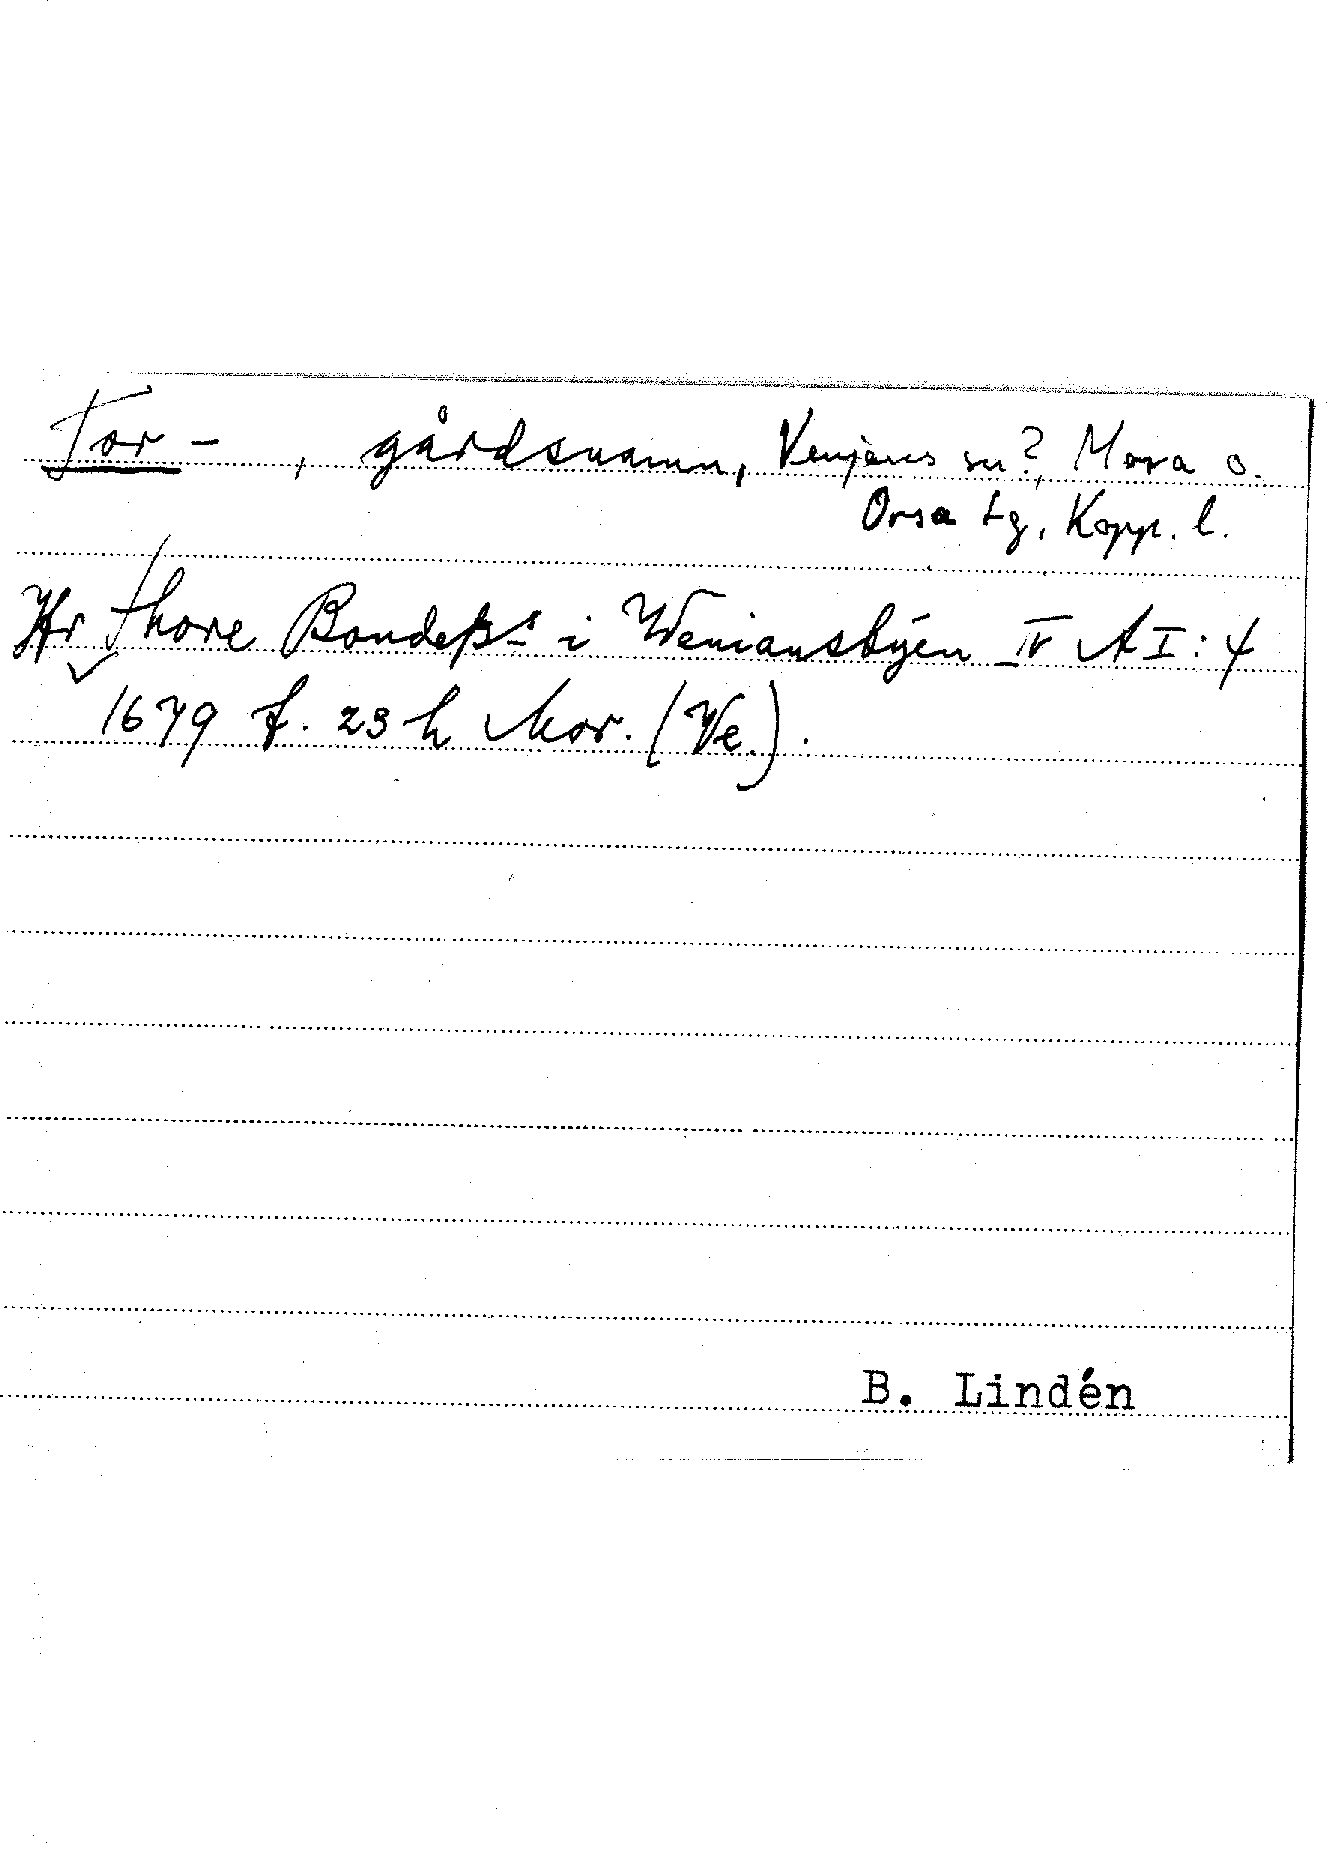 Tor- , gårdsnamn, Venjans sn?, Mora o.
Orsa tg, Kopp. l.
Hr Thore Bondeßs i Weniansbÿen IV A I: 4
1679 f. 23 h Mor. (Ve.).
B. Lindén